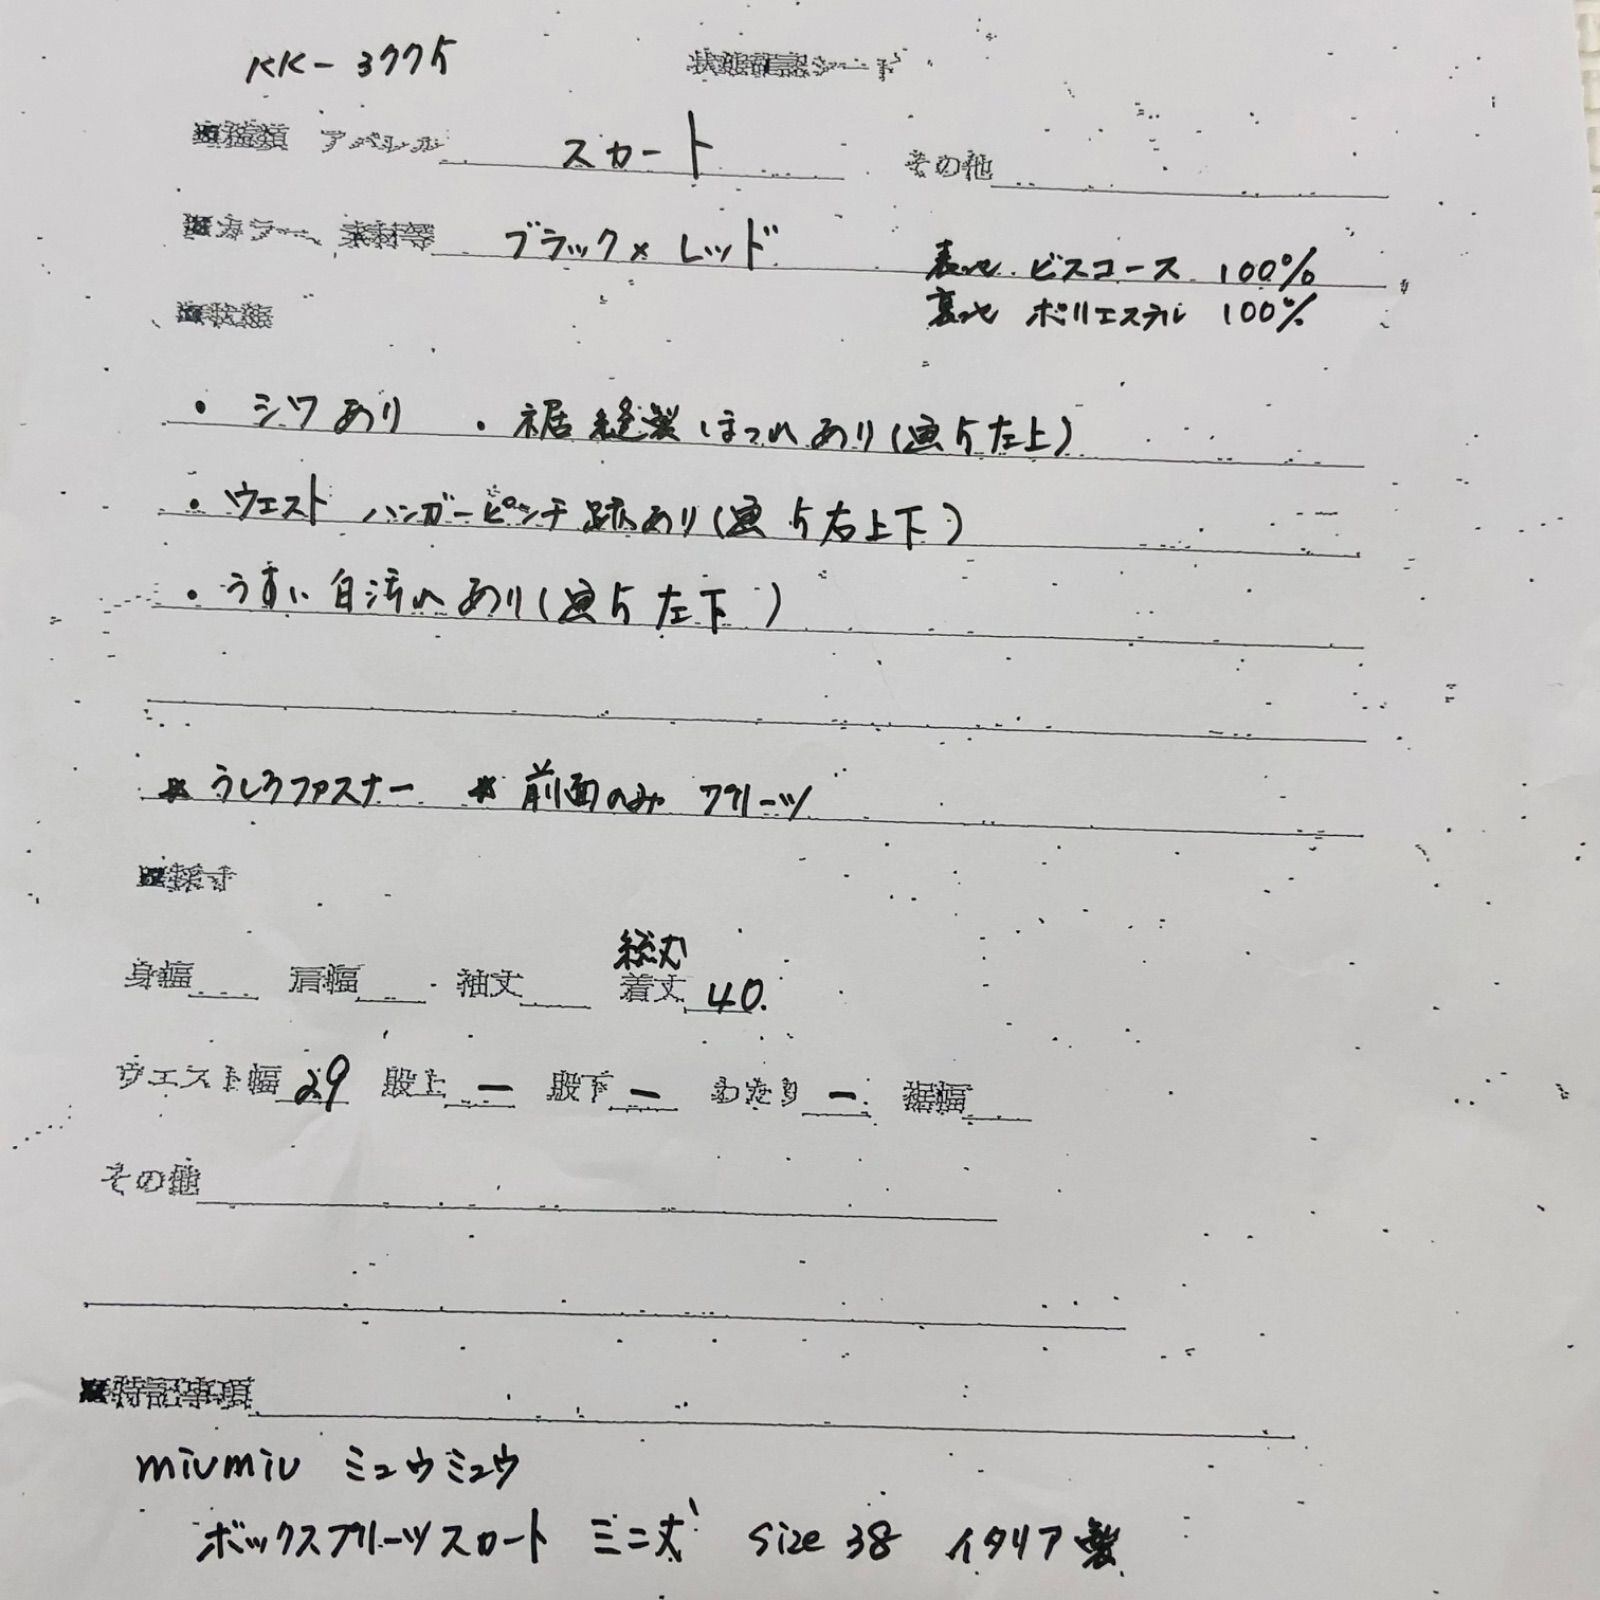 KK-3775 状態確認シート
■種類 アパレル スカート その他
■カラー、素材等 ブラック×レッド 表地 ビスコース 100%
裏地 ポリエステル 100%
■状態
・シワあり ・裾縫製ほつれあり(画5左上)
・ウエスト ハンガーピンチ跡あり(画5右上下)
・うすい白汚れあり(画5左下)
＊うしろファスナー ＊前面のみプリーツ
■採寸
総丈
身幅 肩幅 袖丈 着丈 40.
ウエスト幅 29 股上 ー 股下 ー わたり ー 裾幅
その他
■特記事項
miumiu ミュウミュウ
ボックスプリーツスカート ミニ丈 size 38 イタリア製